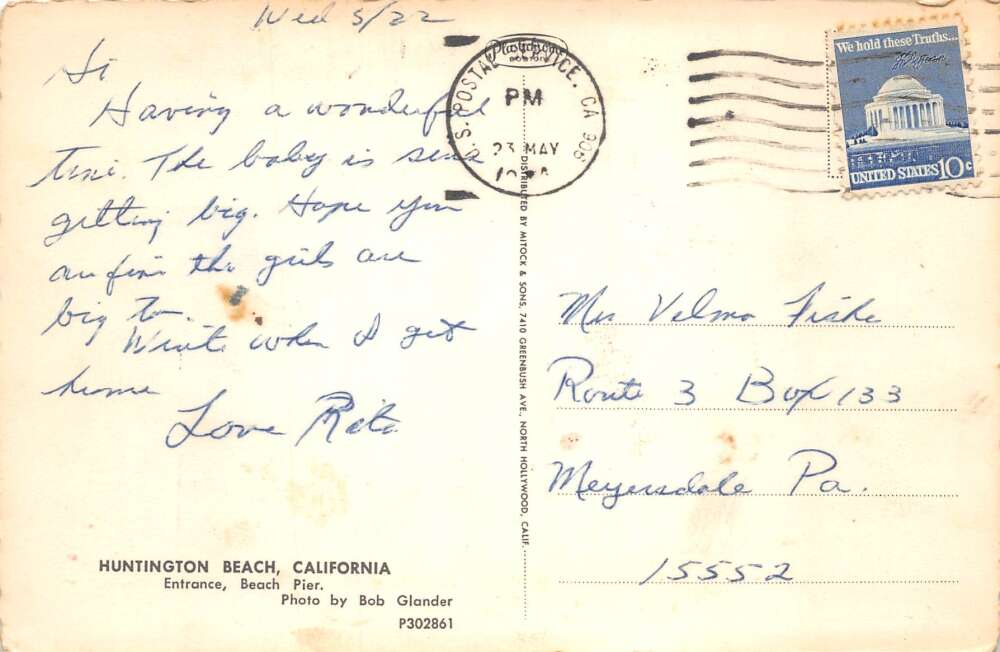 Wed 5/22
Hi
Having a wonderful
time. The baby is sure
getting big. Hope you
are fine the girls are
big to.
Write when I get
home
Love Rita
Plastichrome
BOSTON
U.S. POSTAL SERVICE. CA 906
PM
23 MAY
We hold these Truths...
UNITED STATES 10c
DISTRIBUTED BY MITOCK & SONS, 7410 GREENBUSH AVE., NORTH HOLLYWOOD, CALIF.
Mrs Velma Fiske
Route 3 Box 133
Meyersdale Pa.
15552
HUNTINGTON BEACH, CALIFORNIA
Entrance, Beach Pier.
Photo by Bob Glander
P302861